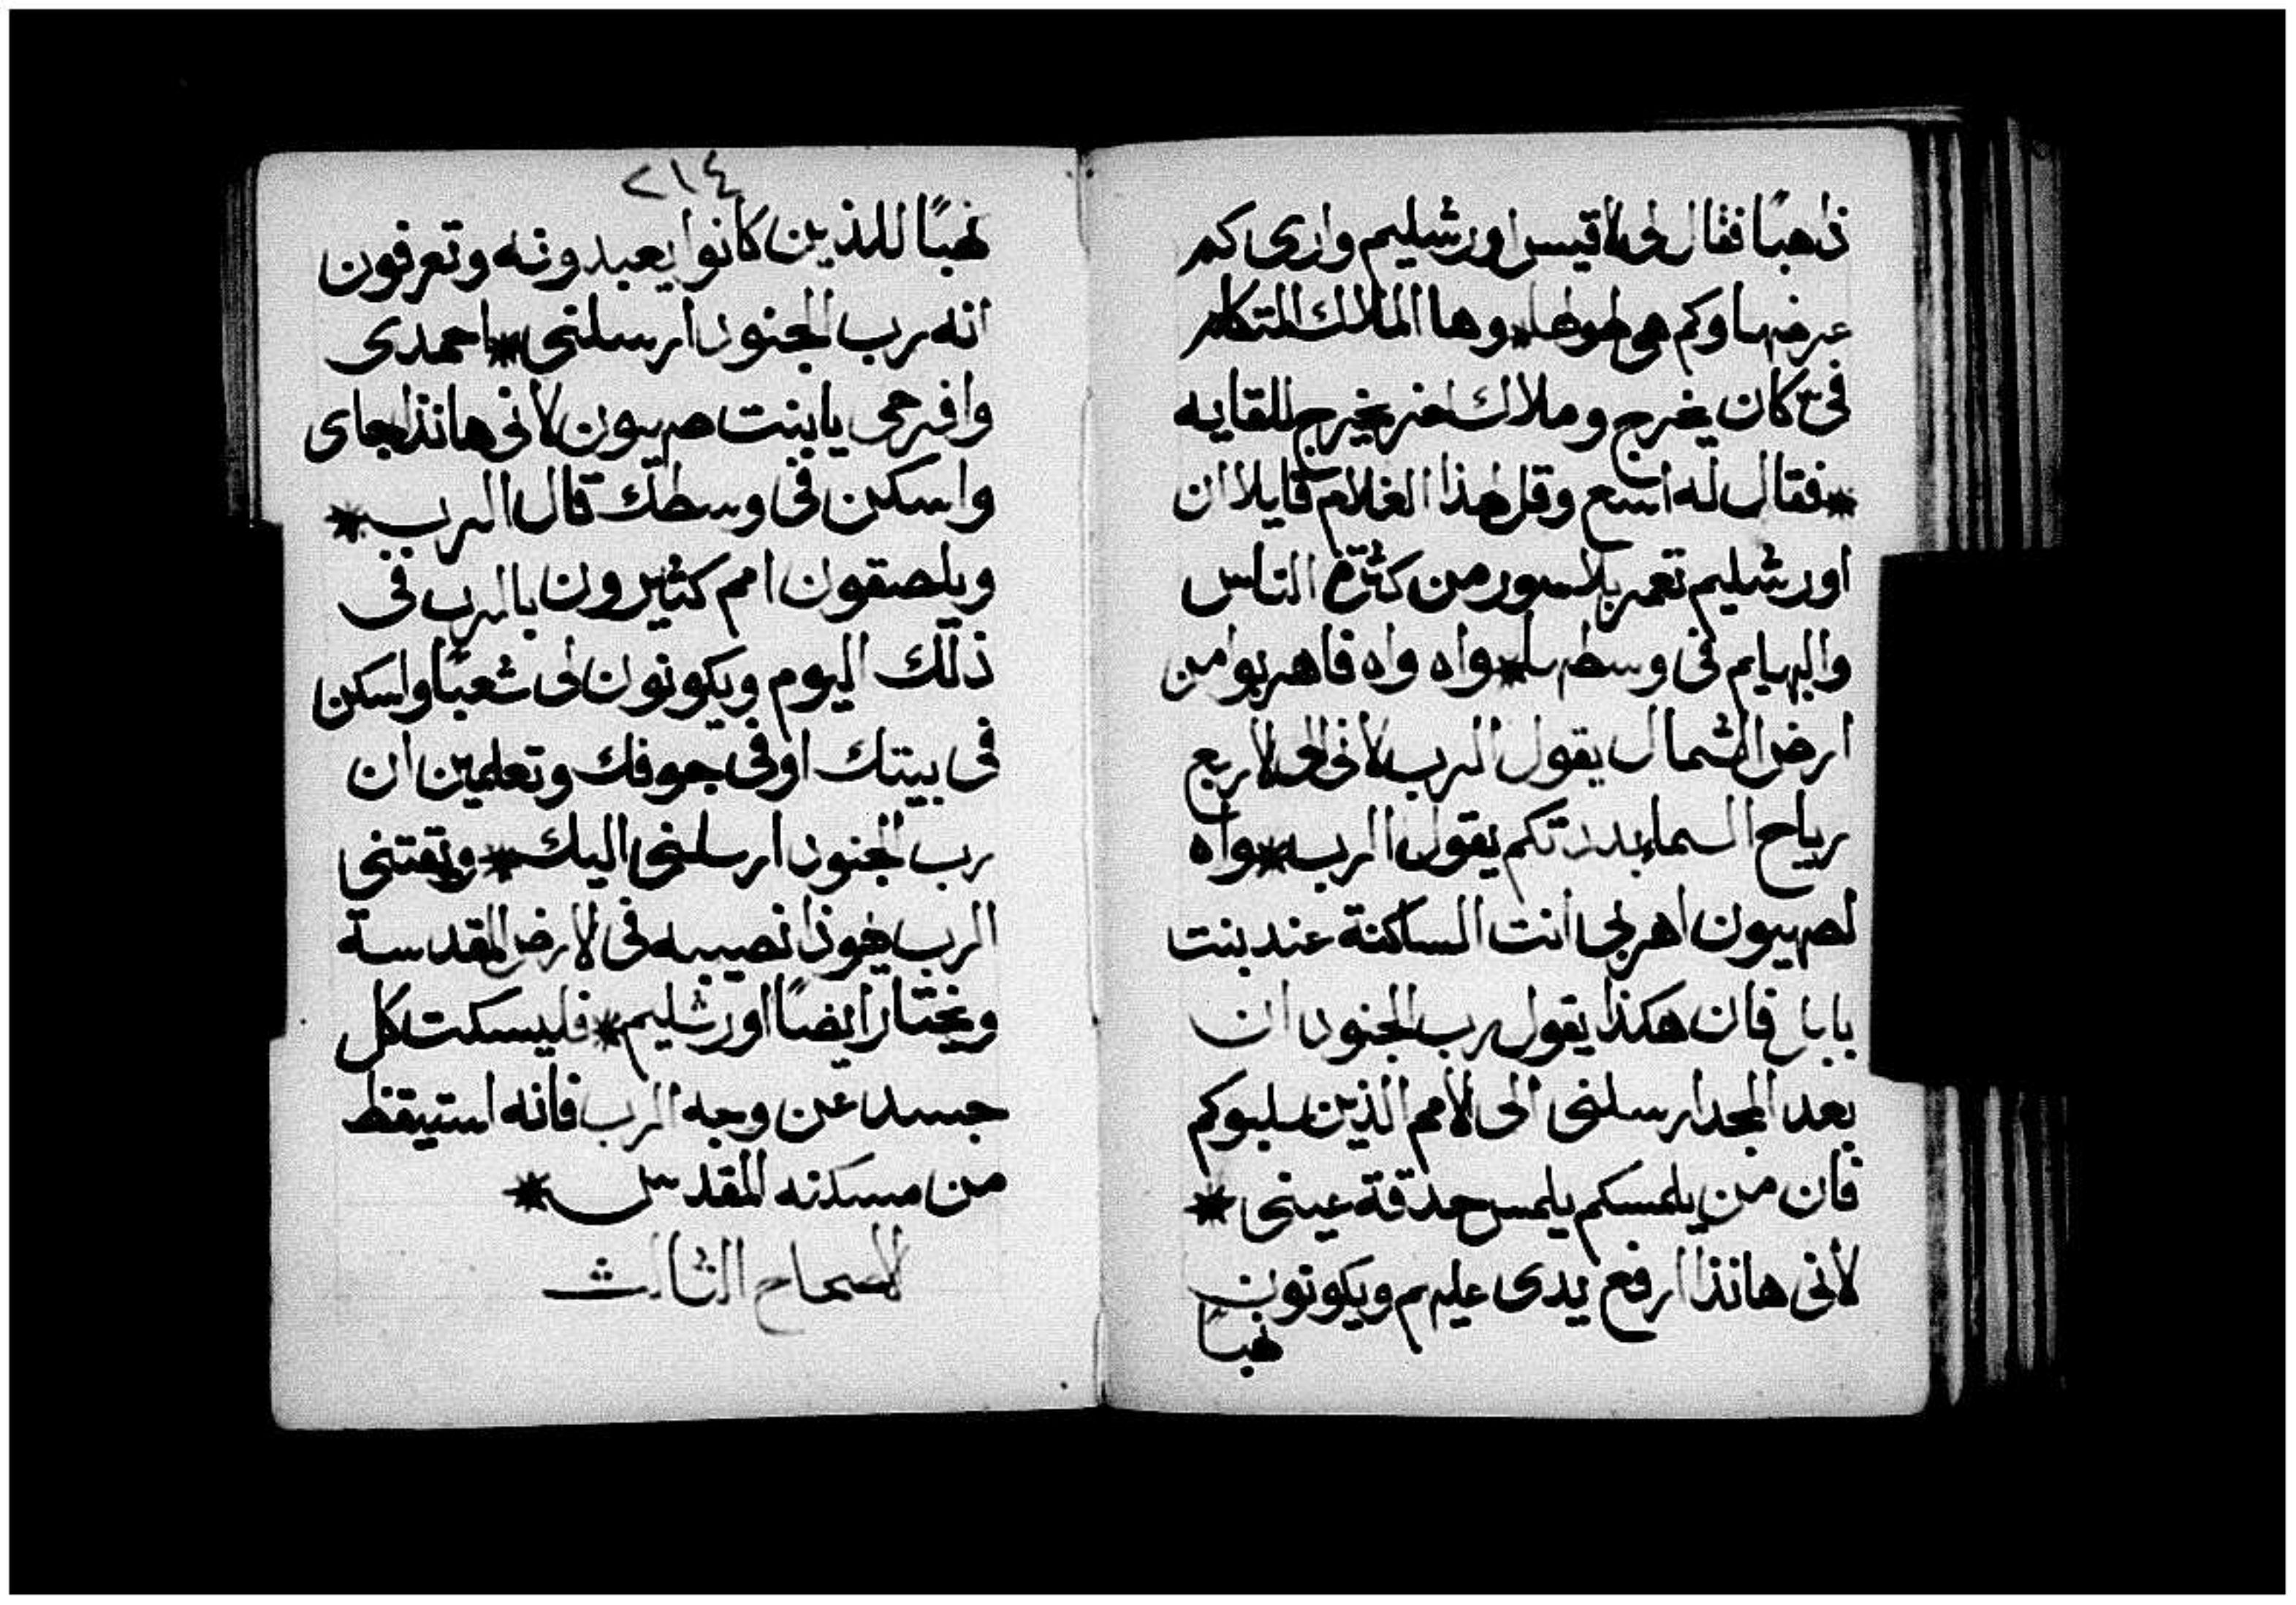 ذاهبًا فقال لى لاقيس اورشليم وارى كم
عرضها وكم هو طولها * وها الملاك المتكلم
فىّ كان يخرج وملاك اخر يخرج للقايه
* فقال له اسع وقل لهذا الغلام قايلا ان
اورشليم تعمر بلا سور من كثرة الناس
والبهايم فى وسطها * واه واه فاهربوا من
ارض الشمال يقول الرب لانى الى الاربع
رياح السماء بددتكم يقول الرب * واه
لصهيون اهربى انت الساكنة عند بنت
بابل فان هكذا يقول رب الجنود ان
بعد المجد ارسلنى الى الأمم الذين سلبوكم
فان من يلمسكم يلمس حدقة عينى *
لأنى هانذا ارفع يدى عليهم ويكونون
نهبًا
٢١٤
نهبًا للذين كانوا يعبدونه وتعرفون
انه رب الجنود ارسلنى * احمدى
وافرحى يا بنت صهيون لأنى هانذا جاى
واسكن فى وسطك قال الرب *
ويلصقون امم كثيرون بالرب فى
ذلك اليوم ويكونون لى شعبًا واسكن
فى بيتك او فى جوفك وتعلمين ان
رب الجنود ارسلنى اليك * ويقتنى
الرب يهوذا نصيبه فى الارض المقدسة
ويختار ايضًا اورشليم * فليسكت كل
جسد عن وجه الرب فانه استيقظ
من مسكنه المقدس *
الاصحاح الثالث